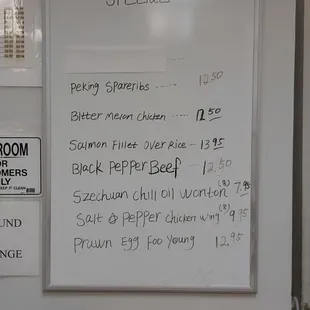 SPECIAL
Peking Spareribs ----- 12.50
Bitter Melon Chicken ---- 12.50
Salmon Fillet Over Rice - 13.95
Black Pepper Beef - 12.50
Szechuan chili oil wonton (8) 7.95
Salt & Pepper chicken wing (8) 9.95
Prawn Egg Foo Young 12.95
ROOM
OR
OMERS
LY
KEEP IT CLEAN
UND
NGE